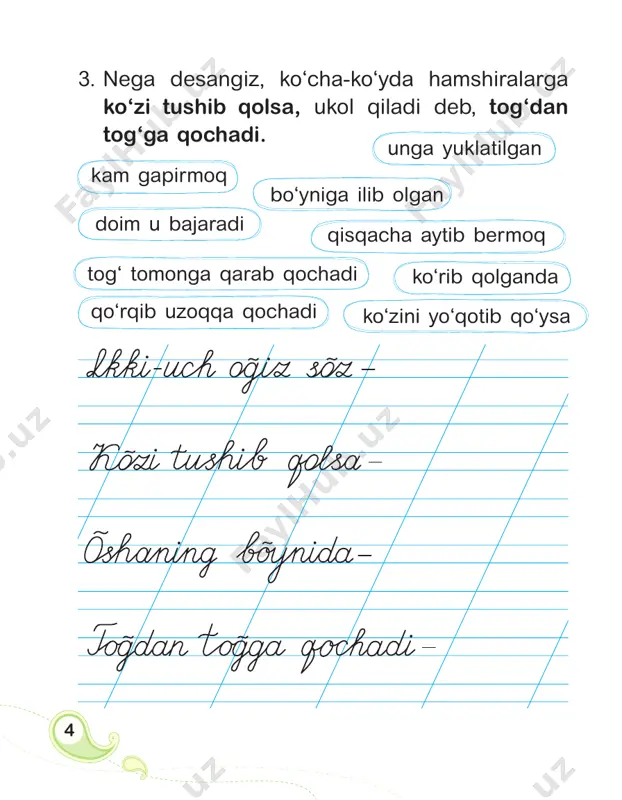 3. Nega desangiz, ko‘cha-ko‘yda hamshiralarga
ko‘zi tushib qolsa, ukol qiladi deb, tog‘dan
tog‘ga qochadi.
unga yuklatilgan
kam gapirmoq
bo‘yniga ilib olgan
doim u bajaradi
qisqacha aytib bermoq
tog‘ tomonga qarab qochadi
ko‘rib qolganda
qo‘rqib uzoqqa qochadi
ko‘zini yo‘qotib qo‘ysa
Ikki-uch og̃iz sõz –
Kõzi tushib qolsa –
Õshaning bõynida –
Tog̃dan tog̃ga qochadi –
4
FaylHub.uz
FaylHub.uz
b.uz
FaylHub.uz
uz
uz